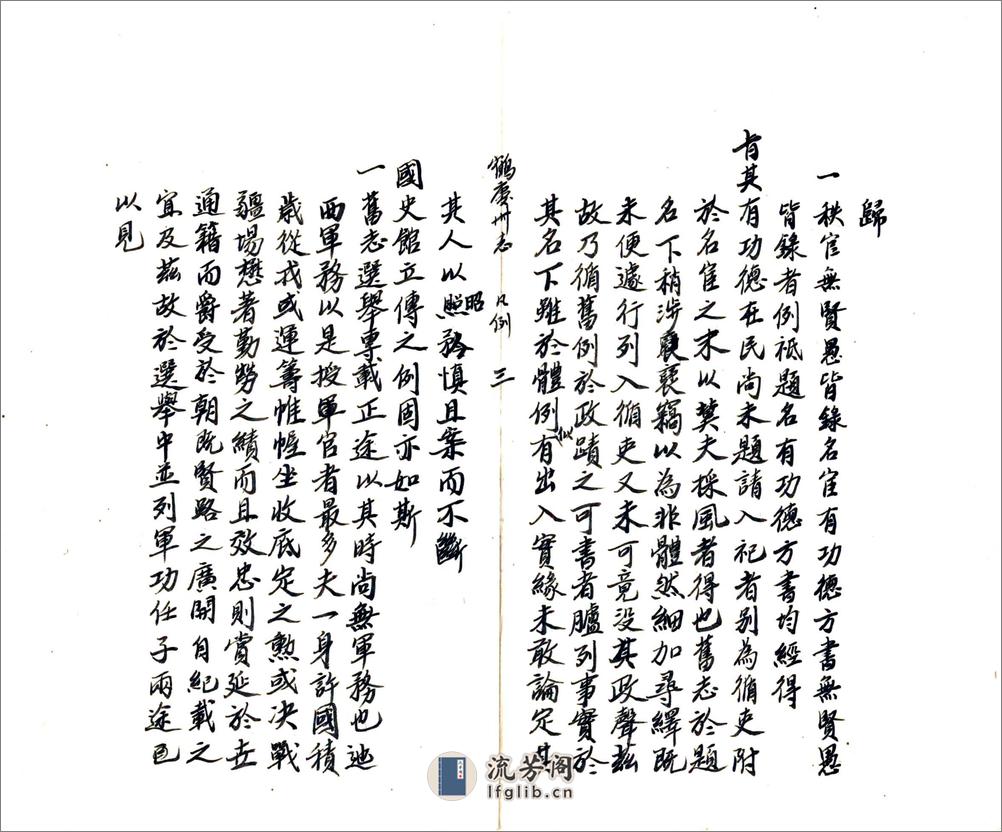 歸
一秩官無賢愚皆錄名宦有功德方書無賢愚
皆錄者例祗題名有功德方書均經得
旨其有功德在民尚未題請入祀者別為循吏附
於名宦之末以冀夫採風者得也舊志於題
名下稍涉褒竊以為非體然細加尋繹既
未便遽行列入循吏又未可竟没其政聲茲
故乃循舊例於政蹟之可書者臚列事實於
其名下雖於體例似有出入實緣未敢論定其
鶴慶州志 凡例 三
其人以昭慎且案而不斷
國史館立傳之例固亦如斯
一舊志選舉專載正途以其時尚無軍務也迆
西軍務以是授軍官者最多夫一身許國積
歲從戎或運籌帷幄坐收底定之勲或决戰
疆場懋著勤勞之績而且效忠則賞延於世
通籍而爵受於朝既賢路之廣開自紀載之
宜及茲故於選舉中並列軍功任子兩途
以見
流芳阁
lfglib.com